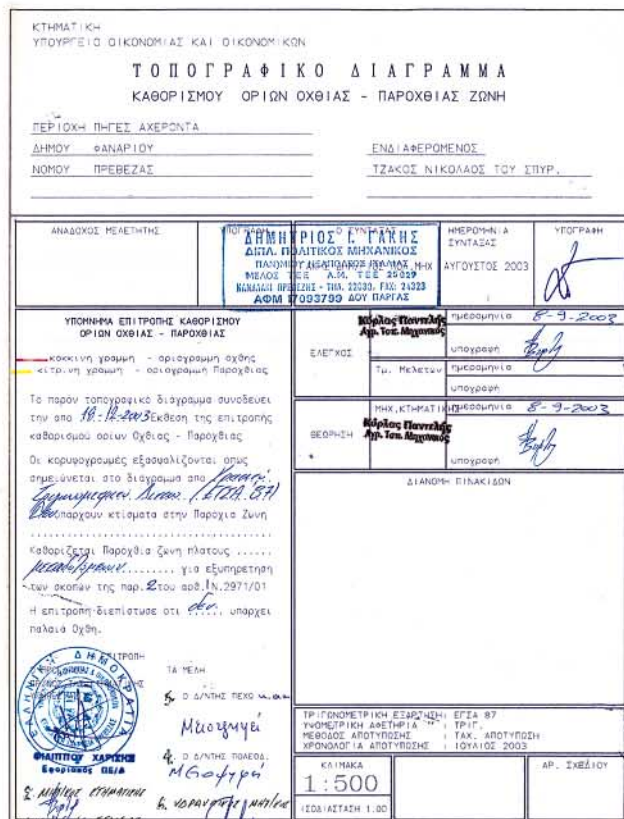 ΚΤΗΜΑΤΙΚΗ
ΥΠΟΥΡΓΕΙΟ ΟΙΚΟΝΟΜΙΑΣ ΚΑΙ ΟΙΚΟΝΟΜΙΚΩΝ
ΤΟΠΟΓΡΑΦΙΚΟ ΔΙΑΓΡΑΜΜΑ
ΚΑΘΟΡΙΣΜΟΥ ΟΡΙΩΝ ΟΧΘΙΑΣ - ΠΑΡΟΧΘΙΑΣ ΖΩΝΗ
ΠΕΡΙΟΧΗ ΠΗΓΕΣ ΑΧΕΡΟΝΤΑ
ΔΗΜΟΥ ΦΑΝΑΡΙΟΥ
ΝΟΜΟΥ ΠΡΕΒΕΖΑΣ
ΕΝΔΙΑΦΕΡΟΜΕΝΟΣ
ΤΖΑΚΟΣ ΝΙΚΟΛΑΟΣ ΤΟΥ ΣΠΥΡ.
ΑΝΑΔΟΧΟΣ ΜΕΛΕΤΗΤΗΣ
ΥΠΟΓΡΑΦΗ
Ο ΣΥΝΤΑΞΑΣ
ΗΜΕΡΟΜΗΝΙΑ
ΣΥΝΤΑΞΑΣ
ΑΥΓΟΥΣΤΟΣ 2003
ΥΠΟΓΡΑΦΗ
ΔΗΜΗΤΡΙΟΣ Γ. ΓΑΚΗΣ
ΔΙΠΛ. ΠΟΛΙΤΙΚΟΣ ΜΗΧΑΝΙΚΟΣ
ΠΑΝ/ΜΙΟΥ ΝΕΑΠΟΛΕΩΣ ΙΤΑΛΙΑΣ
ΜΕΛΟΣ ΤΕΕ Α.Μ. ΤΕΕ 25029
ΚΑΝΑΛΑΚΙ ΠΡΕΒΕΖΗΣ - ΤΗΛ. 22030, FAX: 24323
ΑΦΜ 17093799 ΔΟΥ ΠΑΡΓΑΣ
ΥΠΟΜΝΗΜΑ ΕΠΙΤΡΟΠΗΣ ΚΑΘΟΡΙΣΜΟΥ
ΟΡΙΩΝ ΟΧΘΙΑΣ - ΠΑΡΟΧΘΙΑΣ
κόκκινη γραμμή - οριογραμμή όχθης
κίτρινη γραμμή - οριογραμμή Παρόχθιας
Το παρόν τοπογραφικό διάγραμμα συνοδεύει
την από 18-12-2003 Εκθεση της επιτροπής
καθορισμού ορίων Οχθιας - Παρόχθιας
Οι κορυφογραμμές εξασφαλίζονται όπως
σημειώνεται στο διάγραμμα από
(ΕΓΣΑ 87)
Δεν υπάρχουν κτίσματα στην Παρόχια Ζώνη
Καθορίζεται Παρόχθια ζώνη πλάτους ......
........ για εξυπηρέτηση
των σκοπών της παρ. 2 του αρθ. 1 Ν.2971/01
Η επιτροπή διεπίστωσε οτι δεν υπάρχει
παλαιά Οχθη.
ΕΠΙΤΡΟΠΗ
ΤΑ ΜΕΛΗ
ΕΛΛΗΝΙΚΗ ΔΗΜΟΚΡΑΤΙΑ
ΦΙΛΙΠΠΟΥ ΧΑΡΙΣΗΣ
Εφοριακός ΠΕ/Α
Ο Δ/ΝΤΗΣ ΠΕΧΩ
4. Ο Δ/ΝΤΗΣ ΠΟΛΕΟΔ.
2. ΜΗΧ/ΚΟΣ ΚΤΗΜΑΤΙΚΗΣ
ΕΛΕΓΧΟΣ
Κόρλας Παντελής
Αγρ. Τοπ. Μηχανικός
ημερομηνία 8-9-2003
υπογραφή
Τμ. Μελετών
ημερομηνία
υπογραφή
ΘΕΩΡΗΣΗ
ΜΗΧ.ΚΤΗΜΑΤΙΚΗΣ
Κόρλας Παντελής
Αγρ. Τοπ. Μηχανικός
ημερομηνία 8-9-2003
υπογραφή
ΔΙΑΝΟΜΗ ΠΙΝΑΚΙΔΩΝ
ΤΡΙΓΩΝΟΜΕΤΡΙΚΗ ΕΞΑΡΤΗΣΗ: ΕΓΣΑ 87
ΥΨΟΜΕΤΡΙΚΗ ΑΦΕΤΗΡΙΑ " : ΤΡΙΓ.
ΜΕΘΟΔΟΣ ΑΠΟΤΥΠΩΣΗΣ : ΤΑΧ. ΑΠΟΤΥΠΩΣΗ
ΧΡΟΝΟΛΟΓΙΑ ΑΠΟΤΥΠΩΣΗΣ : ΙΟΥΛΙΟΣ 2003
ΚΛΙΜΑΚΑ
1:500
ΙΣΟΔΙΑΣΤΑΣΗ 1.00
ΑΡ. ΣΧΕΔΙΟΥ